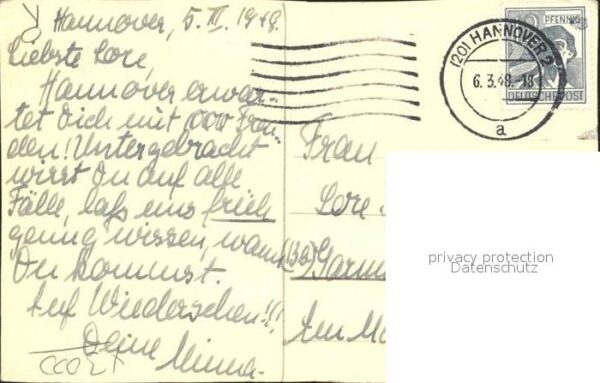 Hannover, 5. III. 1948.
Liebste Lore,
Hannover erwar-
tet Dich mit 1000 Freu-
den! Untergebracht
wirst Du auf alle
Fälle, laß uns früh
genug wissen, wann
Du kommst.
Auf Wiedersehen!!!
Deine Minna-
Frau
Lore
(13b) Garmi
Am
PFENNIG
DEUTSCHE POST
(20) HANNOVER 2
6.3.48.-18
a
privacy protection
Datenschutz